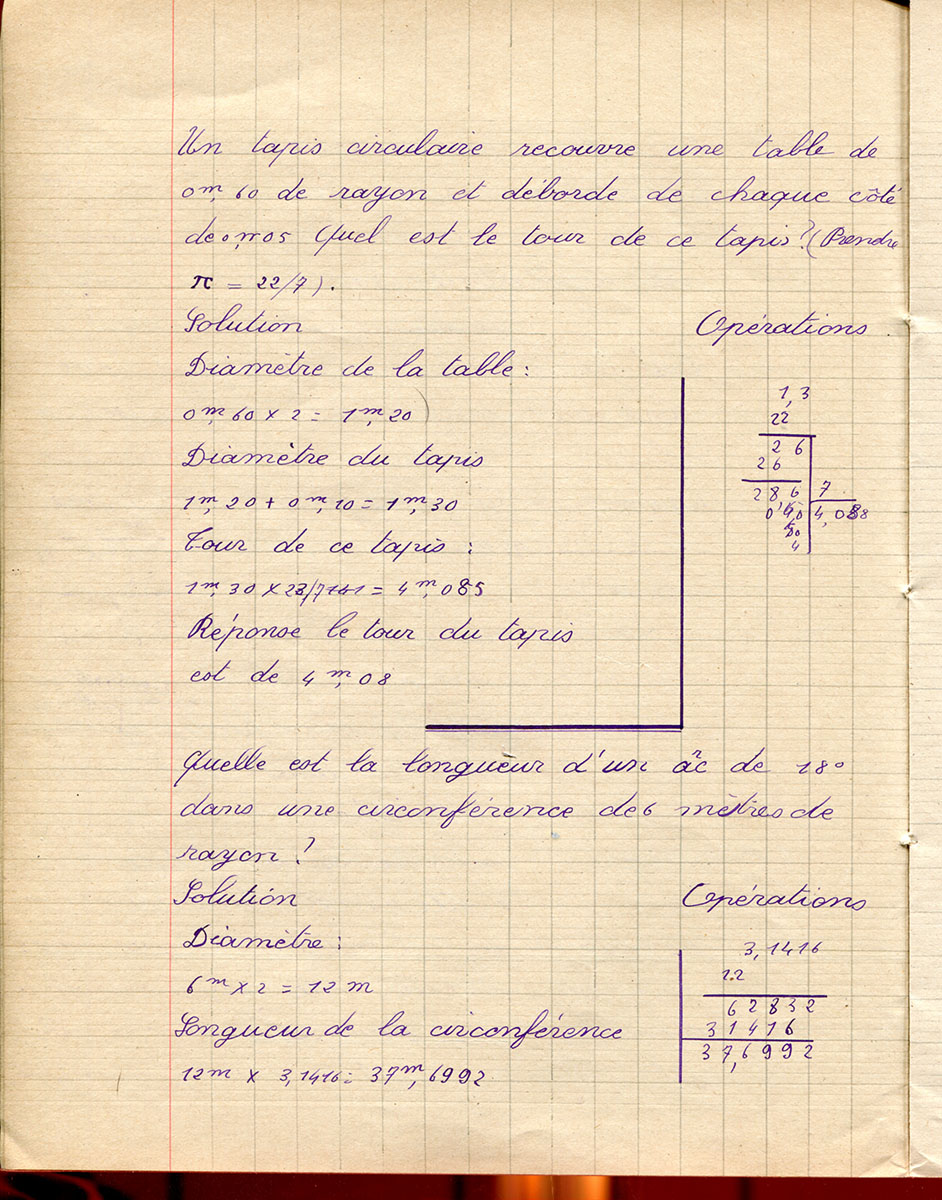 Un tapis circulaire recouvre une table de
0m,60 de rayon et déborde de chaque côté
de 0,m05 Quel est le tour de ce tapis? (Prendre
π = 22/7).
Solution
Opérations
Diamètre de la table :
0m,60 x 2 = 1m,20
Diamètre du tapis
1m,20 + 0m,10 = 1m,30
Tour de ce tapis :
1m,30 x 22/7 = 4m,085
Réponse le tour du tapis
est de 4m,08
1,3
22
2 6
2 6
2 8,6 7
0 4 0 4,08
4
Quelle est la longueur d'un arc de 18°
dans une circonférence de 6 mètres de
rayon ?
Solution
Opérations
Diamètre :
6m x 2 = 12 m
Longueur de la circonférence
12m x 3,1416 = 37m,6992
3,1416
12
6 2 8 3 2
3 1 4 1 6
3 7,6 9 9 2